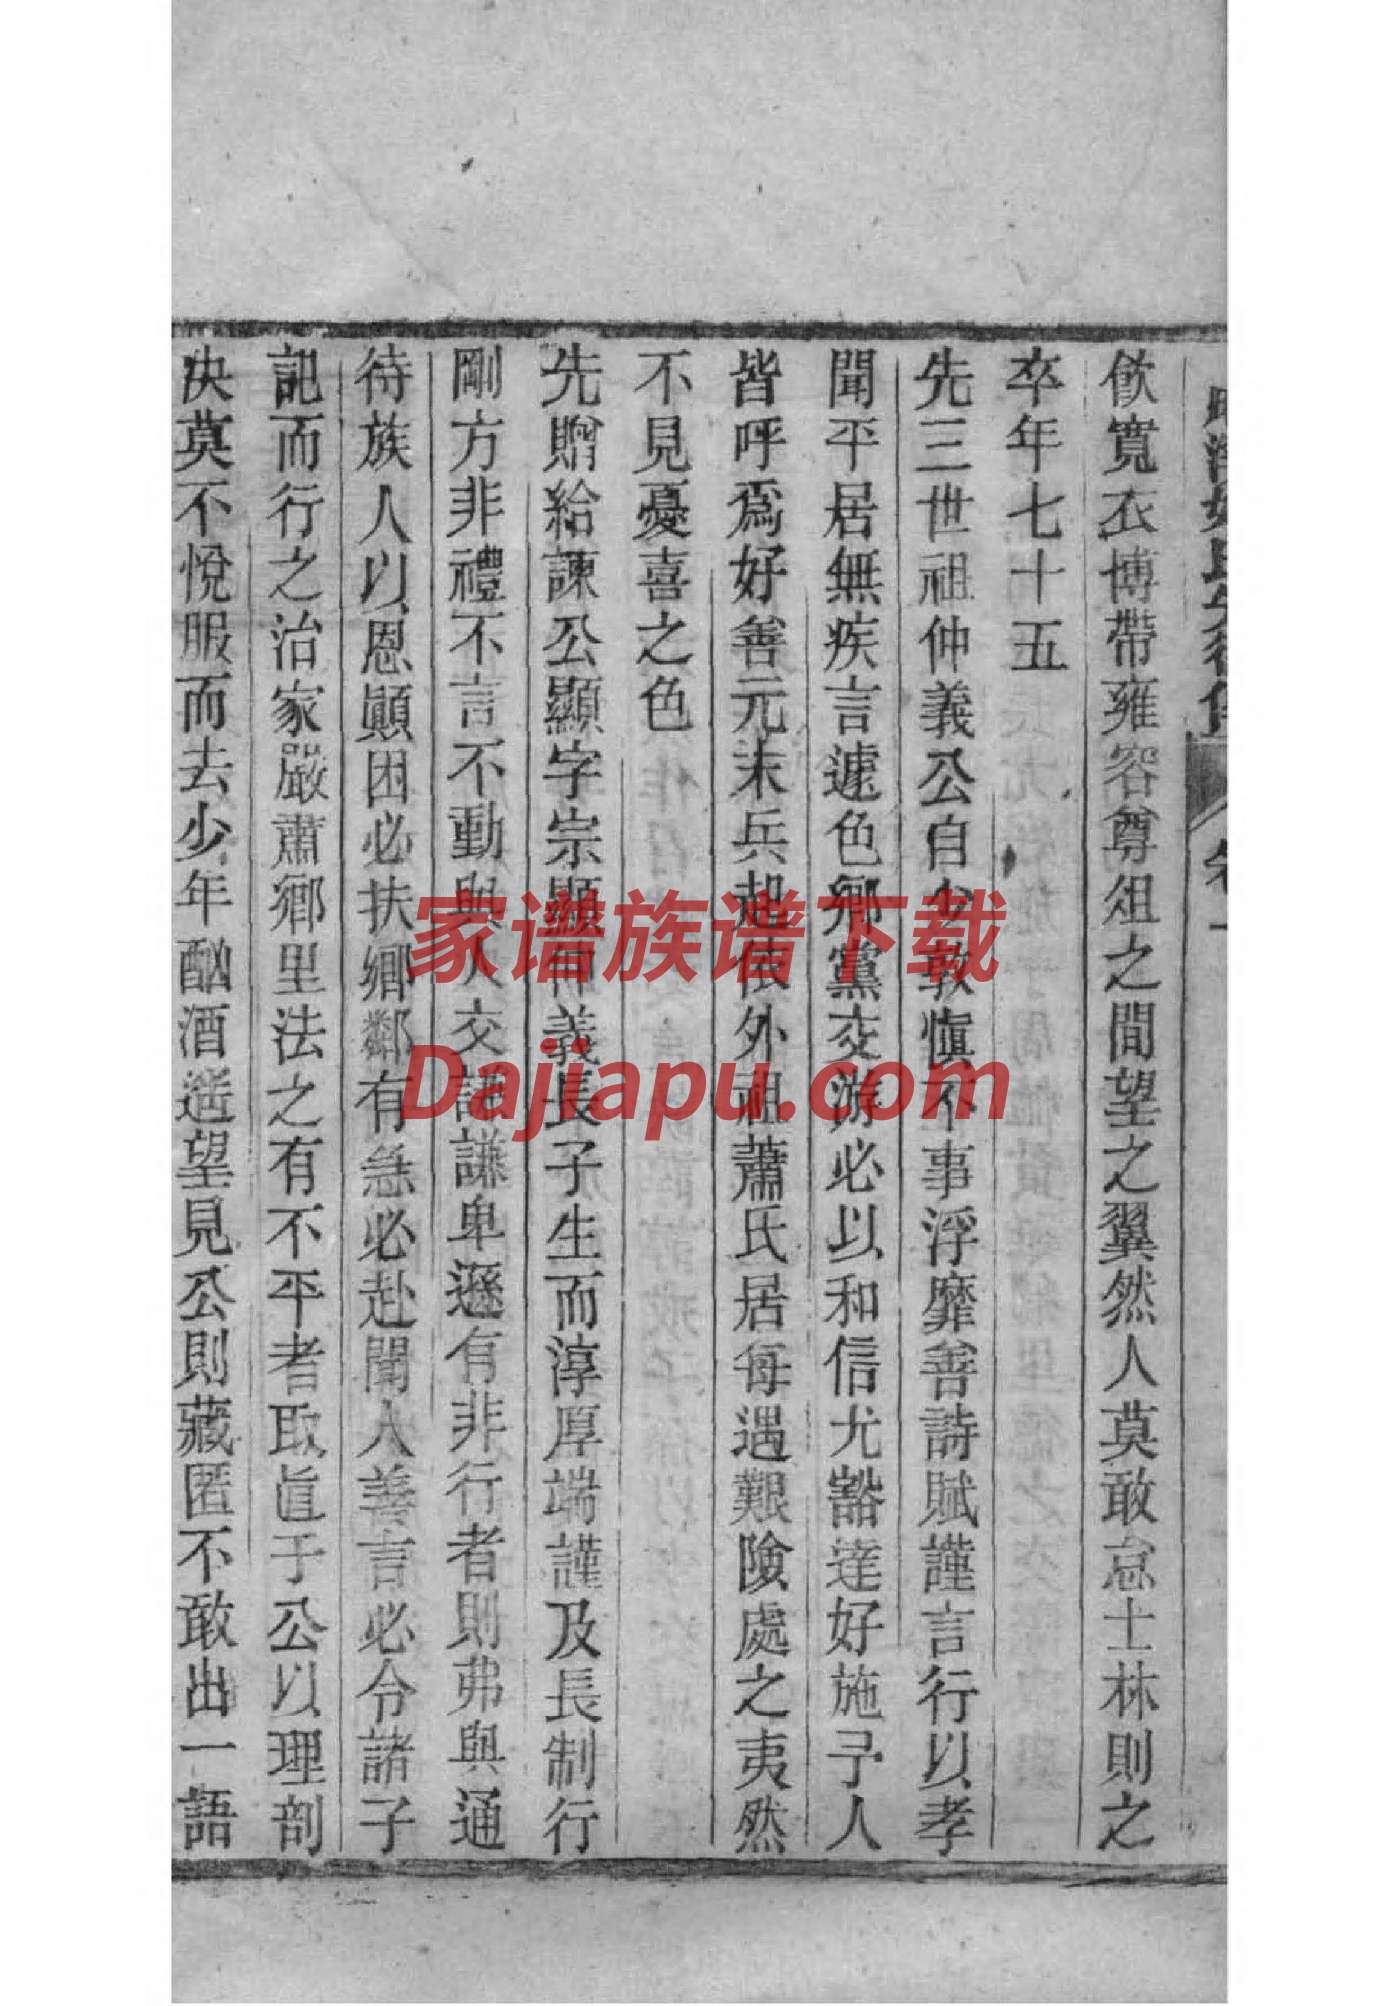 飲寬衣博帶雍容尊俎之間望之翼然人莫敢怠士林則之
卒年七十五
先三世祖仲義公自少敦慎不事浮靡善詩賦謹言行以孝
聞平居無疾言遽色鄉黨交游必以和信尤豁達好施予人
皆呼爲好善元末兵起依外祖蕭氏居每遇艱險處之夷然
不見憂喜之色
先贈給諫公顯字宗顯仲義長子生而淳厚端謹及長制行
剛方非禮不言不動與人交謙卑遜有非行者則弗與通
待族人以恩顚困必扶鄉鄰有急必赴聞人善言必令諸子
記而行之治家嚴肅鄉里法之有不平者取直于公以理剖
决莫不悅服而去少年酗酒遥望見公則藏匿不敢出一語
家谱族谱下载
Dajiapu.com